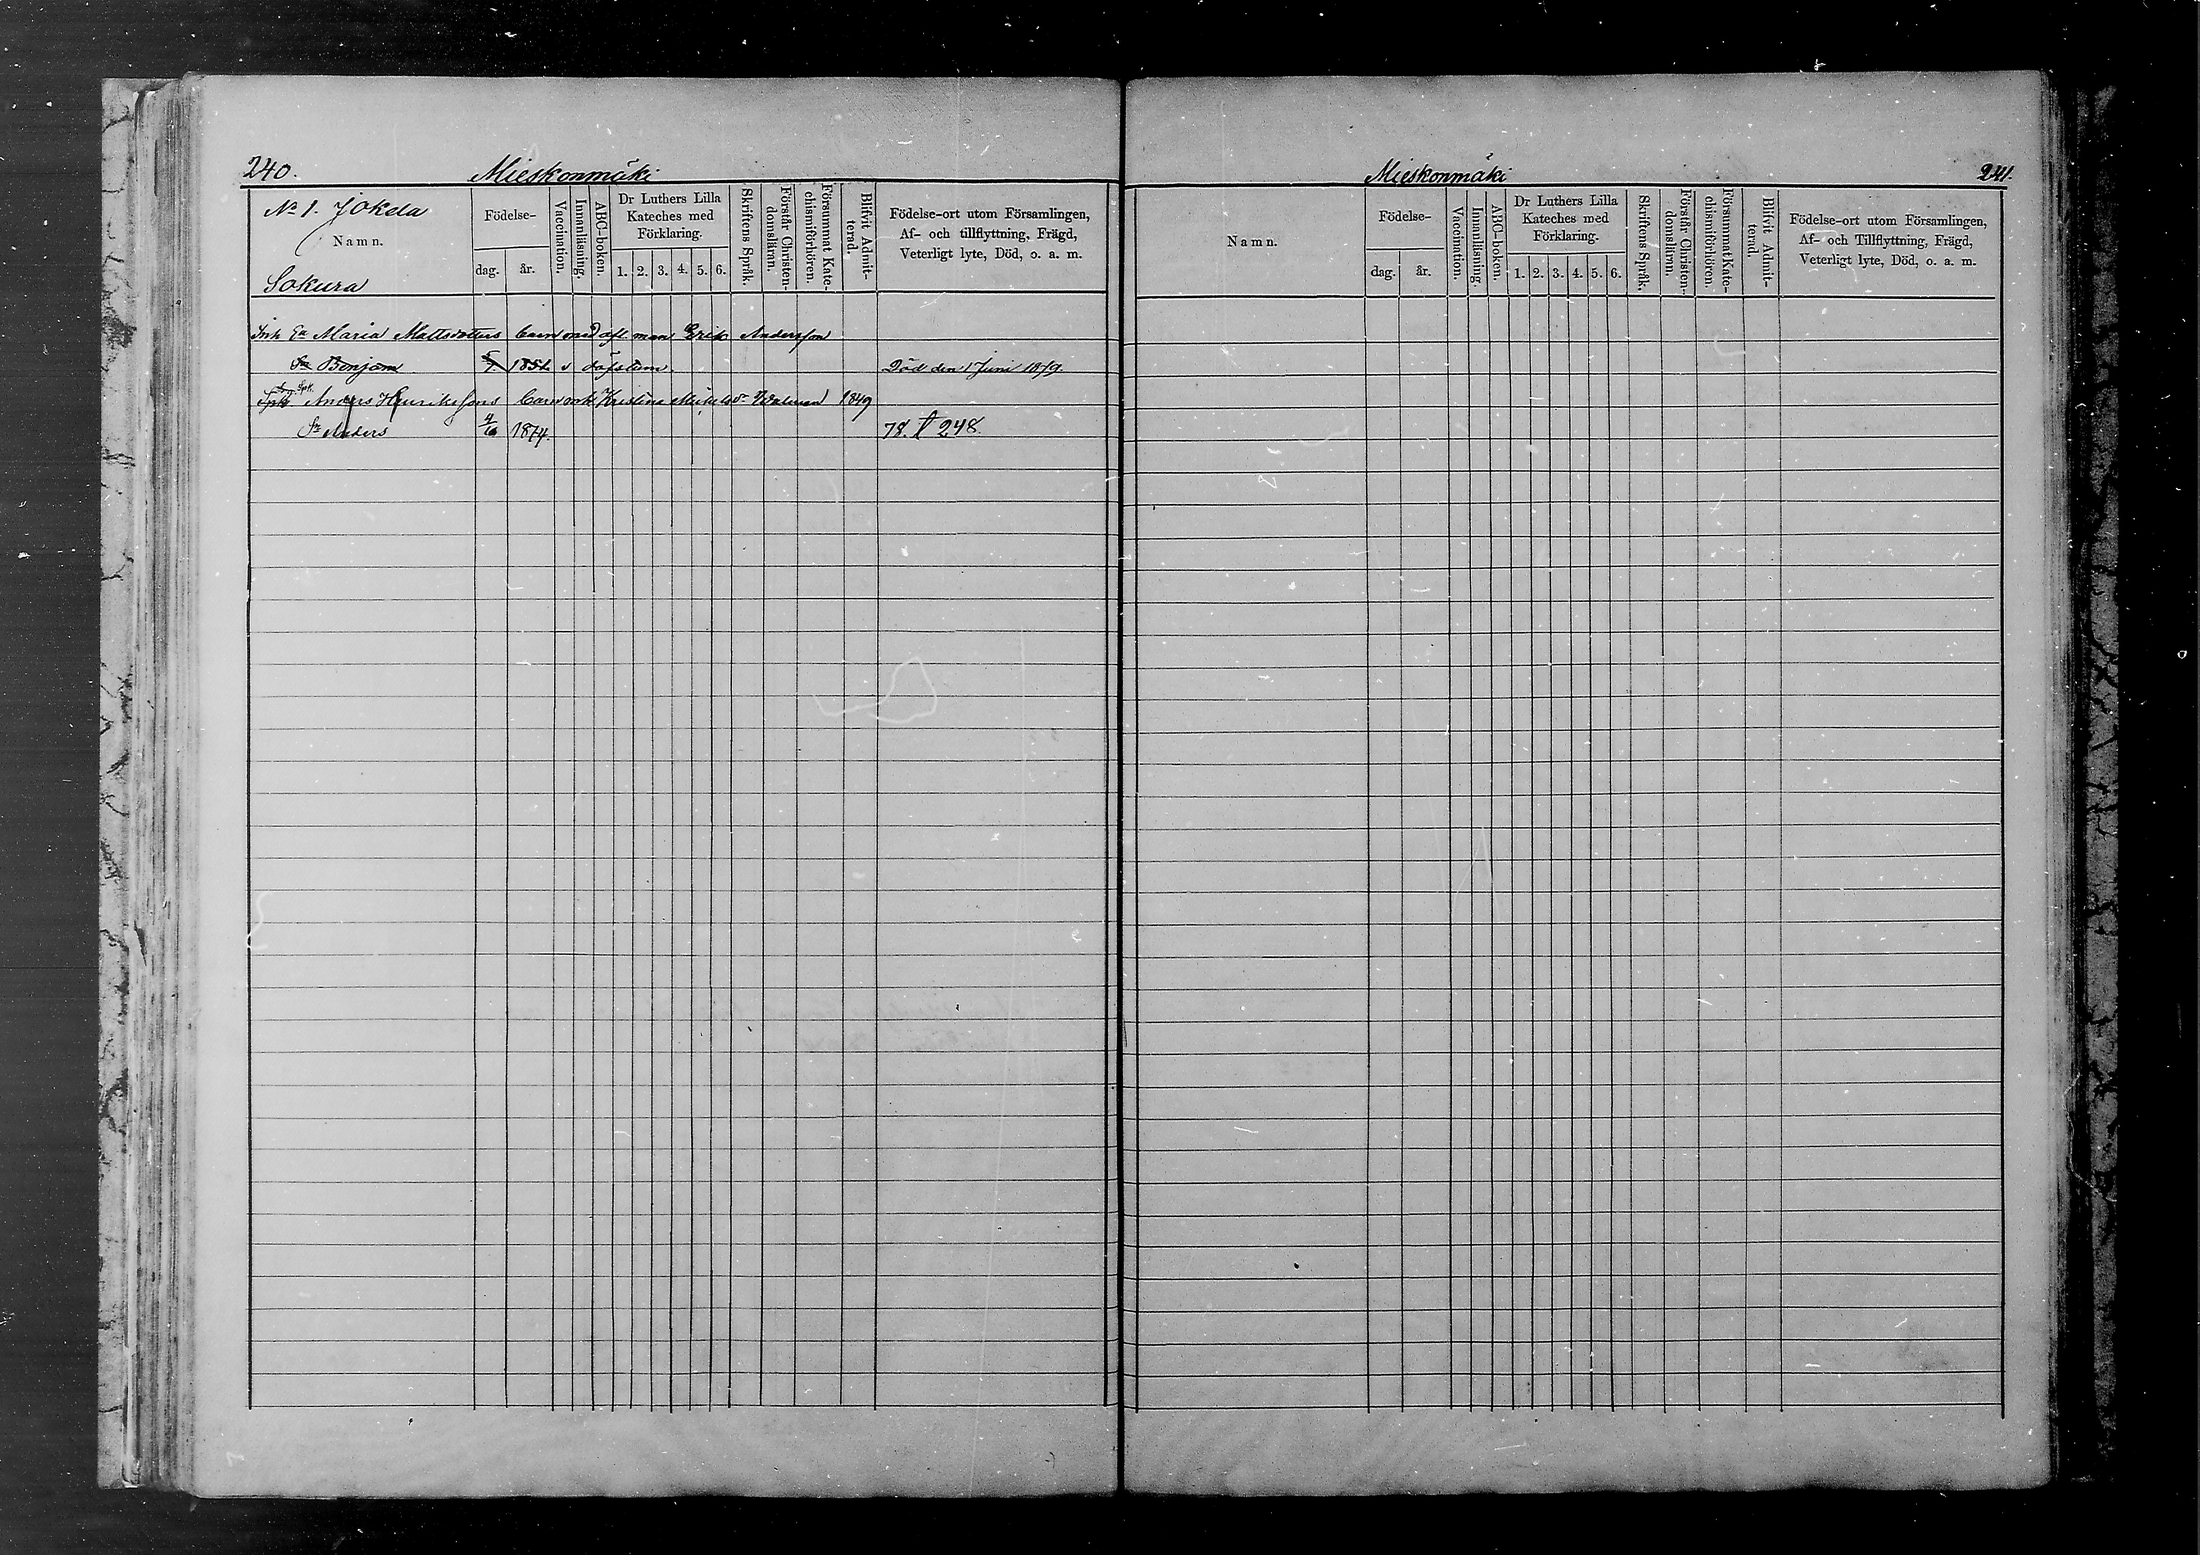 240. Mieskonmäki
No 1. Jokela
Namn.
Sokura
Födelse-
dag. år.
Vaccination.
Innanläsning.
ABC-boken.
Dr Luthers Lilla
Kateches med
Förklaring.
1. 2. 3. 4. 5. 6.
Skriftens Språk.
Förstår Christen-
domsläran.
Försummat Kate-
chismiförhören.
Blifvit Admit-
terad.
Födelse-ort utom Församlingen,
Af- och tillflyttning, Frägd,
Veterligt lyte, Död, o. a. m.
Inh Ea Maria Mattsdotters barn med afl man Erik Andersson
Sn Benjam 1851 v döfstum. Död den 1 Juni 1879.
Anders Henrikssons barn Kristina 1849
Sn Anders 4/6 1874. 78. 248.
Mieskonmäki 241.
Namn.
Födelse-
dag. år.
Vaccination.
Innanläsning.
ABC-boken.
Dr Luthers Lilla
Kateches med
Förklaring.
1. 2. 3. 4. 5. 6.
Skriftens Språk.
Förstår Christen-
domsläran.
Försummat Kate-
chismiförhören.
Blifvit Admit-
terad.
Födelse-ort utom Församlingen,
Af- och Tillflyttning, Frägd,
Veterligt lyte, Död, o. a. m.